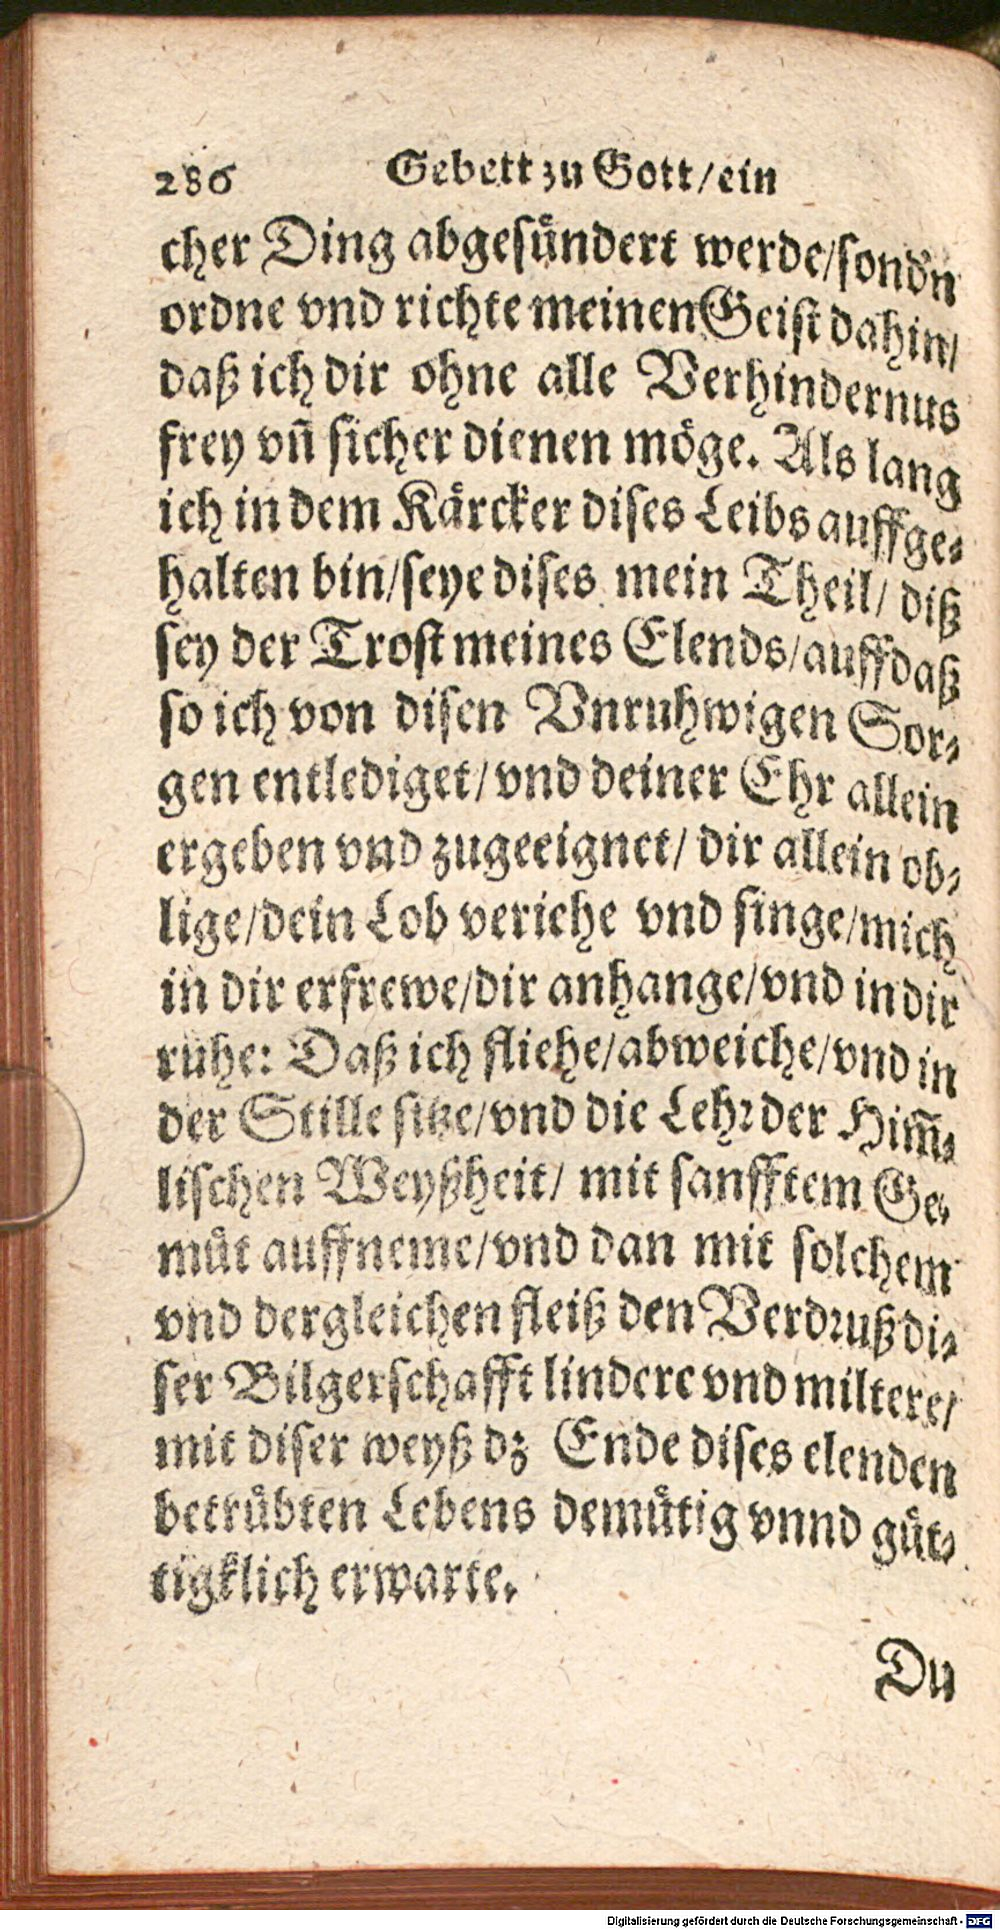 286 Gebett zu Gott/ein
cher Ding abgesuͤndert werde/sond'n
ordne vnd richte meinen Geist dahin/
daß ich dir ohne alle Verhindernus
frey vn̄ sicher dienen moͤge. Als lang
ich in dem Kaͤrcker dises Leibs auffge⸗
halten bin/seye dises mein Theil/ diß
sey der Trost meines Elends/auffdaß
so ich von disen Vnruhwigen Sor⸗
gen entlediget/vnd deiner Ehr allein
ergeben vnd zugeeignet/ dir allein ob⸗
lige/dein Lob veriehe vnd singe/mich
in dir erfrewe/dir anhange/vnd in dir
ruhe: Daß ich fliehe/abweiche/vnd in
der Stille sitze/vnd die Lehꝛ der Him̄⸗
lischen Weyßheit/ mit sanfftem Ge⸗
muͤt auffneme/vnd dan mit solchem
vnd dergleichen fleiß den Verdꝛuß di⸗
ser Bilgerschafft lindere vnd miltere/
mit diser weyß dz Ende dises elenden
betruͤbten Lebens demuͤtig vnnd guͤt⸗
tigklich erwarte.
Du
Digitalisierung gefördert durch die Deutsche Forschungsgemeinschaft - DFG